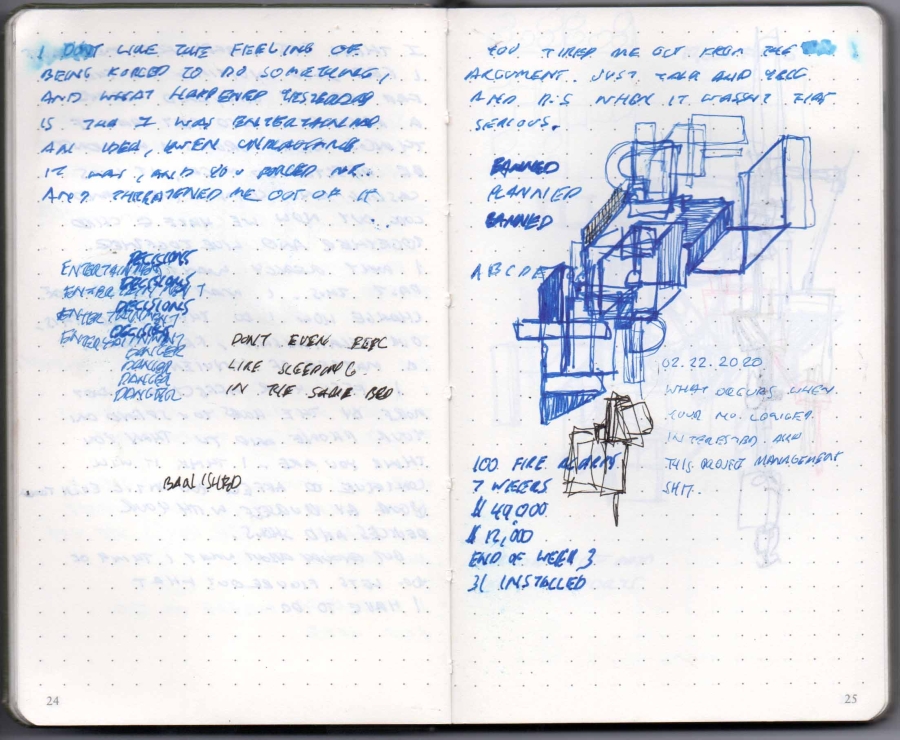 I DON'T LIKE THE FEELING OF
BEING FORCED TO DO SOMETHING,
AND WHAT HAPPENED YESTERDAY
IS THE I WAS ENTERTAINING
AN IDEA, WHEN
IT WAS, AND YOU FORCED ME
AND THREATENED ME OUT OF IT.
DECISIONS
ENTERTAINMENT
DECISIONS
ENTERTAINMENT
DECISIONS
ENTERTAINMENT
DECISIONS
ENTERTAINMENT
DANGER
DANGER
DANGER
DANGER
DON'T EVEN FEEL
LIKE SLEEPING
IN THE SAME BED
BANISHED
24
YOU TIRED ME OUT FROM THE
ARGUMENT. JUST TALK AND
AND IT'S WHEN IT WASN'T THAT
SERIOUS.
BANNED
PLANNED
BANNED
A B C D E
02.22.2020
WHAT OCCURS WHEN
YOUR NO LONGER
INTERESTED AND
THIS PROJECT MANAGEMENT
SHIT.
100 FIRE ALARMS
7 WEEKS
$ 49,000
$ 12,000
END OF WEEK 3
31 INSTALLED
25